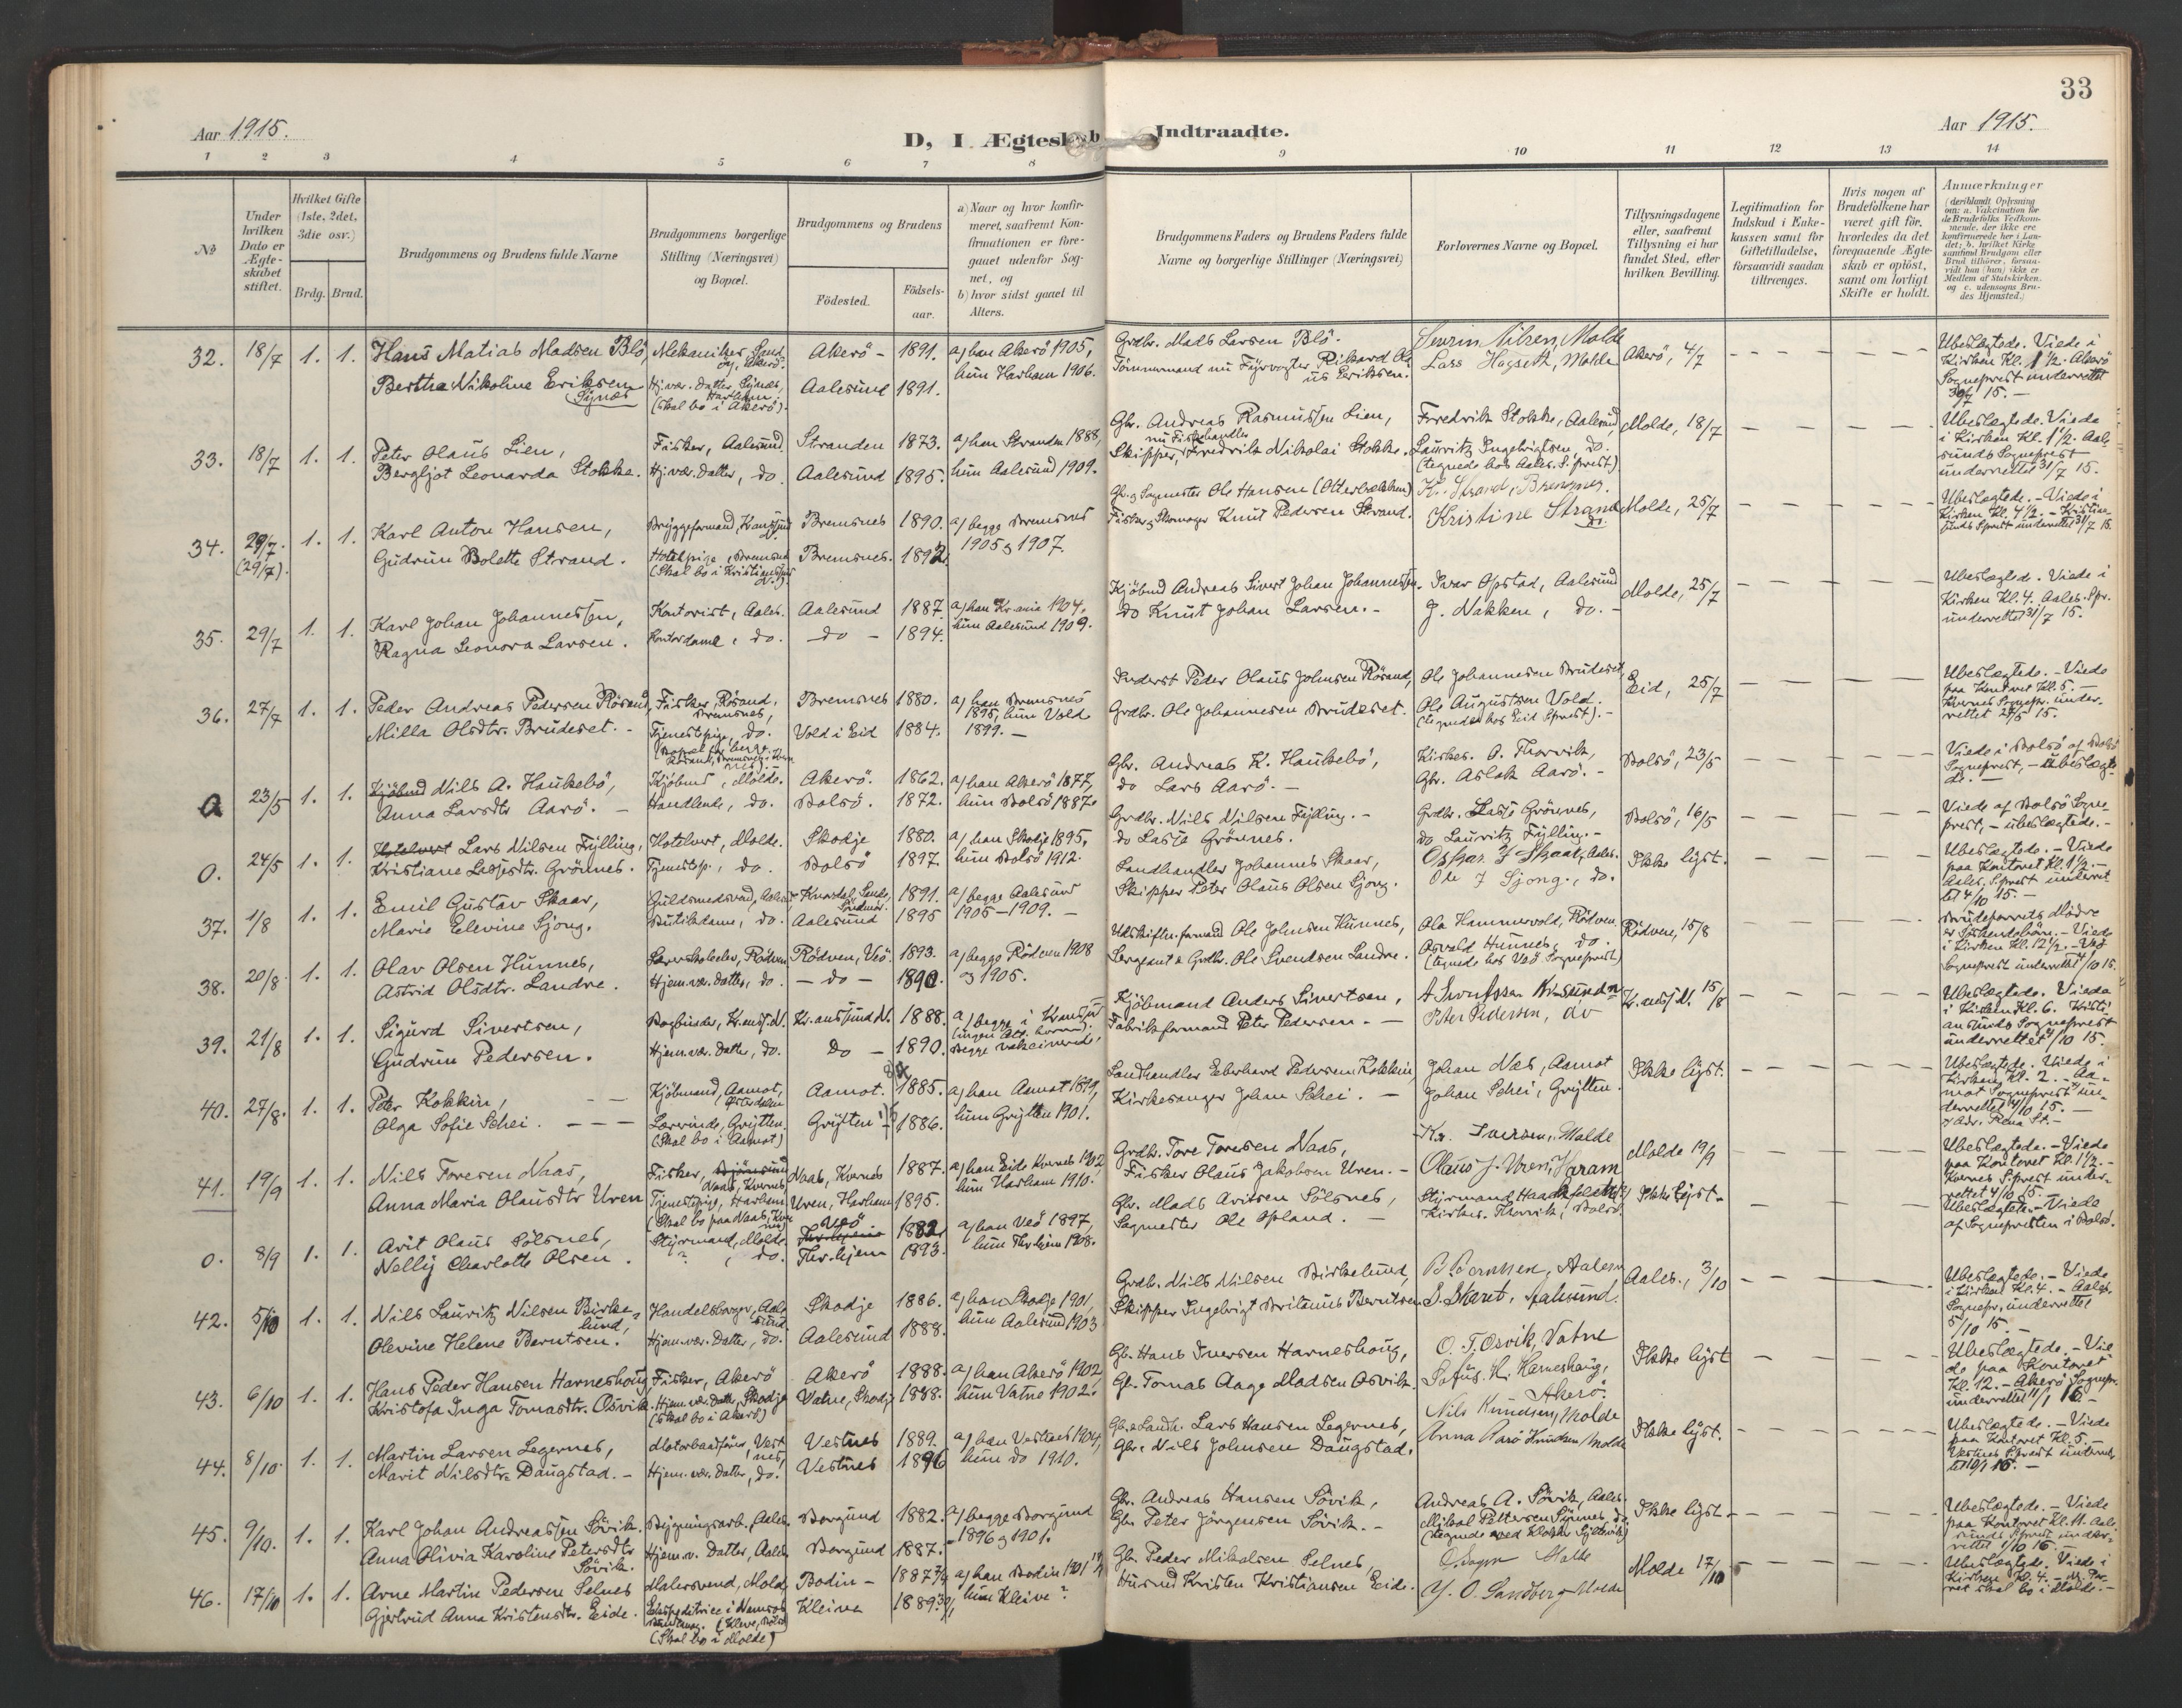 33
Aar 1915.
D, I Ægteskab Indtraadte.
Aar 1915.
1 2 3 4 5 6 7 8 9 10 11 12 13 14
№
Under hvilken Dato er Ægteskabet stiftet.
Hvilket Gifte (1ste, 2det, 3die osv.)
Brdg. Brud.
Brudgommens og Brudens fulde Navne
Brudgommens borgerlige Stilling (Næringsvei) og Bopæl.
Brudgommens og Brudens
Födested.
Födsels-aar.
a) Naar og hvor konfirmeret, saafremt Konfirmationen er foregaaet udenfor Sognet, og
b) hvor sidst gaaet til Alters.
Brudgommens Faders og Brudens Faders fulde Navne og borgerlige Stillinger (Næringsvei)
Forlovernes Navne og Bopæl.
Tillysningsdagene eller, saafremt Tillysning ei har fundet Sted, efter hvilken Bevilling.
Legitimation for Indskud i Enkekassen samt for Giftetilladelse, forsaavidt saadan tiltrænges.
Hvis nogen af Brudefolkene har været gift för, hvorledes da det foregaaende Ægteskab er oplöst, samt om lovligt Skifte er holdt.
Anmærkninger
(deriblandt Oplysning om: a. Vakcination for de Brudefolks Vedkommende, der ikke ere konfirmerede her i Landet; b. hvilket Kirkesamfund Brudgom eller Brud tilhörer, forsaavidt han (hun) ikke er Medlem af Statskirken, og c. udensogns Brudes Hjemsted.)
32. 18/7 1. 1. Hans Matias Madsen Blö, Mekaniker, Sandöy, Akerö. Akerö - 1891. a) han Akerö 1905, Grdbr. Mads Larsen Blö. Severin Nilsen, Molde Akerö, 4/7 Ubeslægtede. Viede i
Bertha Nikoline Eriksen Synæs Hj.vær. Datter, Synæs, Harham. (Skal bo i Akerö). Aalesund 1891. hun Harham 1906. Tömmermand nu Fyrvogter Rikard Olaus Eriksen. Lars Hogseth, Molde Kirken Kl. 1 1/2. Akerö Sogneprest underrettet 15. -
33. 18/7 1. 1. Peter Olaus Lien, Fisker, Aalesund Stranden 1873. a) han Stranden 1888, Gbr. Andreas Rasmussen Lien, Fredrik Stokke, Aalesund, Molde, 18/7 Ubeslægtede. Viede
Bergljot Leonarda Stokke. Hj.vær. Datter, do. Aalesund 1895. hun Aalesund 1909. Skipper, nu Fiskehandler Fredrik Nikolai Stokke. Lauritz Ingebrigtsen, do. (tegnede hos Aales. S.prest) i Kirken Kl. 1 1/2. Aalesunds Sogneprest underrettet 31/7 15.
34. 29/7. (29/7). 1. 1. Karl Anton Hansen, Bryggeformand, Kr.ansund N. Bremsnes 1890. a) begge Bremsnes Gbr. og Sagmester Ole Hansen (Otterbækken) K. Strand, Bremsnes. Molde, 25/7 Ubeslægtede. - Viede i
Gudrun Bolette Strand. Hotelpige, Bremsnes (Skal bo i Kristianssund N.). Bremsnes. 1892. 1905 og 1907. Fisker og Skomager Knut Pedersen Strand. Kristine Strand do. Kirken Kl. 4 1/2. - Kristiansunds S.prest underrettet 31/7 15.
35. 29/7 1. 1. Karl Johan Johannessen, Kontorist, Aales. Aalesund 1887 a) han Kr.ania 1904. Kjöbmd Andreas Sivert Johan Johannessen. Ivar Opstad, Aalesund Molde, 25/7 Ubeslægted. Viede i
Ragna Leonora Larsen. Kontordame, do. do - 1894. hun Aalesund 1909. do Knut Johan Larsen. - J. Nakken, do. - Kirken Kl. 4. Aales. S.pr. underrettet 31/7 15.
36. 27/7 1. 1. Peder Andreas Pedersen Rörand, Fisker, Rösand, Bremsnes, Bremsnes 1880. a) han Bremsnes 1895, hun Vold 1899. - Inderst Peder Olaus Johnsen Rösand, Ole Johannesen Bruderet, Eid, 25/7 Ubeslægtede. - Viede
Milla Olsdtr. Bruderet. - Tjenestepige, do. Vold i Eid 1884. Grdbr. Ole Johannesen Bruderet. Ole Augustsen Vold. (tegnede hos Eid S.prest). - paa Kontoret Kl. 5. - Kvernes Sognepr. underrettet 15.
a 23/5 1. 1. Kjöbmd Nils A. Haukebö, Kjöbmd, Molde. Akerö. 1862. a) han Akerö 1877, Gbr. Andreas K. Haukebö, Kirkes. O. Thorvik, Bolsö, 23/5 Viede i Bolsö af Bolsö
Anna Larsdtr Aarö. - Handlende, do. Bolsö. 1872. hun Bolsö 1887. do Lars Aarö. - Gbr. Aslak Aarö. - Sogneprest, - ubeslægtede. -
0. 24/5 1. 1. Hotelvert Lars Nilsen Fylling, Hotelvert, Molde. Skodje 1880. a) han Skodje 1895, Grdbr. Nils Nilsen Fylling. - Grdbr. Lasse Grönnes, Bolsö, 16/5 Viede af Bolsö Sogneprest, - ubeslægtede. -
Kristiane Lassesdtr. Grönnes. Tjenestep., do. Bolsö 1897. hun Bolsö 1912. do Lasse Grönnes. do Lauritz Fylling. -
37. 1/8 1. 1. Emil Gustav Skaar, Guldsmedsvend, Aalesund 1891. a) begge Aalesund Landhandler Johannes Skaar, Oskar J Skaar, Aales. Ikke lyst. Ubeslægtede. - Viede
Marie Elevine Sjong. Butikdame, do. Aalesund 1895 1905 - 1909. - Skipper Peter Olaus Olsen Sjong. Ole J Sjong., do. paa Kontoret Kl. 1 1/2. - Aales. S.prest underrettet 4/10 15. -
38. 20/8. 1. 1. Olav Olsen Hunnes, Lærer, Rödven Rödven, Veö. 1893. a) begge Rödven 1908 Udskiftn.formand Ole Johnsen Hunnes, Ola Hammervold, Rödven. Rödven, 15/8 Brudeparrets Mödre
Astrid Olsdtr. Landre. Hjem.vær. Datter, do. - do - 1890. og 1905. Sergeant & Grdbr. Ole Svendsen Landre. Osvald Hunnes, do. (tegnede hos Veö Sogneprest) er Söskendebörn. - Viede i Kirken Kl. 12 1/2. - Veö Sogneprest underrettet 4/10 15.
39. 21/8 1. 1. Sigurd Sivertsen, Bogbinder, Kr.anss.N. Kr.anssund N. 1888. a) begge i Kr.anssund Kjöbmand Anders Sivertsen, A Sivertsen Kr.sund N Kr.anss. N. 15/8 Ubeslægtede. Viede
Gudrun Pedersen. Hjem.vær. Datter, do. Do - 1890. Begge vakcinerede. Fabrikformand Peter Pedersen. - Peter Pedersen, do i Kirken Kl. 6. Kristiansunds Sogneprest underrettet 4/10 15.
40. 27/8. 1. 1. Peter Kokkin, - - Kjöbmand, Aamot, Österdalen Aamot. 1885. a) han Aamot 1899, Landhandler Eberhard Pedersen Kokkin, Johan Næs, Aamot Ikke lyst. Ubeslægtede. Viede i
Olga Sofie Schei. - - - Lærerinde, Grytten. (Skal bo i Aamot) Grytten 1886. hun Grytten 1901. Kirkesanger Johan Schei. - Johan Schei, Grytten. Kirken, Kl. 2. - Aamot Sogneprest underrettet 4/10 15. - Adr. Rena St. -
41. 19/9 1. 1. Nils Toresen Naas, Fisker, Naas, Kvernes Naas, Kvernes 1887. a) han Eide Kvernes 1902 Grdbr. Tore Toresen Naas, Kr. Iversen, Molde Molde 19/9 Ubeslægtede. - Viede
Anna Maria Olausdtr Uren Tjenestepige, Harham (Skal bo paa Naas, Kvernes) Uren, Harham 1895. hun Harham 1910. Fisker Olaus Jakobsen Uren. - Olaus J. Uren, Haram paa Kontoret Kl. 1 1/2. - Kvernes S.prest underrettet 4/10 15.
0. 8/9 1. 1. Avit Olaus Sölsnes, Styrmand, Molde. Veö 1882 a) han Veö 1897, Gbr. Mads Avitsen Sölsnes, Ikke lyst. Ubeslægtede. - Viede
Nelly Charlotte Olsen. ?, do. Thr.hjem 1893. hun Thr.hjem 1908. Sagmester Ole Opland. - Kirkes. Thorvik, Bolsö. af Sognepresten i Bolsö.
42. 5/10 1. 1. Nils Lauritz Nilsen Birkelund, Handelsborger, Aalesund. Skodje 1886. a) han Skodje 1901, Grdb. Nils Nilsen Birkelund, B Berntsen, Aalesund Aales., 3/10 Ubeslægtede. - Viede
Olevine Helene Berntsen. Hjem.vær. Datter, do. Aalesund 1888. hun Aalesund 1903 Skipper Ingebrigt Britanus Berntsen. S. Skaret, Aalesund. i Kirken Kl. 4. - Aales. Sognepr. underrettet 5/10 15. -
43. 6/10 1. 1. Hans Peder Hansen Harneshoug, Fisker, Akerö Akerö 1888. a) han Akerö 1902 Gb. Hans Iversen Harneshoug, O. T. Osvik, Vatne Ikke lyst Ubeslægtede. - Vie
Kristofa Inga Tomasdtr. Osvik. Hjem.vær. Datter, Skodje (Skal bo i Akerö) Vatne, Skodje 1888. hun Vatne 1902. Gb. Tomas Aage Madsen Osvik. Sofus H. Harneshaug, Akerö. de paa Kontoret Kl. 12. - Akerö Sognepr. underrettet 11/1 16. -
44. 8/10. 1. 1. Martin Larsen Legernes, Motorbaadförer, Vestnes, Vestnes 1889. a) han Vestnes 1904, Gbr. & Landh. Lars Hansen Legernes, Nils Knudsen, Molde Ikke lyst. Ubeslægtede. - Viede
Marit Nilsdtr. Daugstad. - Hjem.vær. Datter, do. Vestnes 1896 hun do 1910. Gbr. Nils Johnsen Daugstad. Anna Aarö Knudsen, Molde paa Kontoret Kl. 5. - Vestnes S.prest underrettet 16. -
45. 9/10. 1. 1. Karl Johan Andreassen Sövik. Bygningsarb., Aales. Borgund 1882. a) begge Borgund Gbr. Andreas Hansen Sövik, Andreas A. Sövik, Aales. Ikke lyst. Ubeslægtede. - Viede
Anna Olivia Karoline Petersdtr Sövik. Hjem.v. Datter, Aales. Borgund 1887. - 1896 og 1901. Gbr. Peter Jörgensen Sövik. - Mikal Pettersen Synnes do. paa Kontoret Kl. 11. Aalesunds S.prest underrettet 16. -
46. 17/10 1. 1. Arne Martin Pedersen Selnes Malersvend, Molde Bodin - 1887 a) han Bodin 1901 Gbr. Peder Mikalsen Selnes, Molde Molde 17/10 Ubeslægtede. Viede i
Gjertrud Anna Kristensdtr. Eide. Ekspeditrice i Namsos (Kleive, Bolsö) (Skal bo i Molde) Kleive 1889 hun Kleive? Husmd Kristen Kristiansen Eide. Y. O. Sandberg Molde Kirken Kl. 4. - Parret skal bo i Molde. -